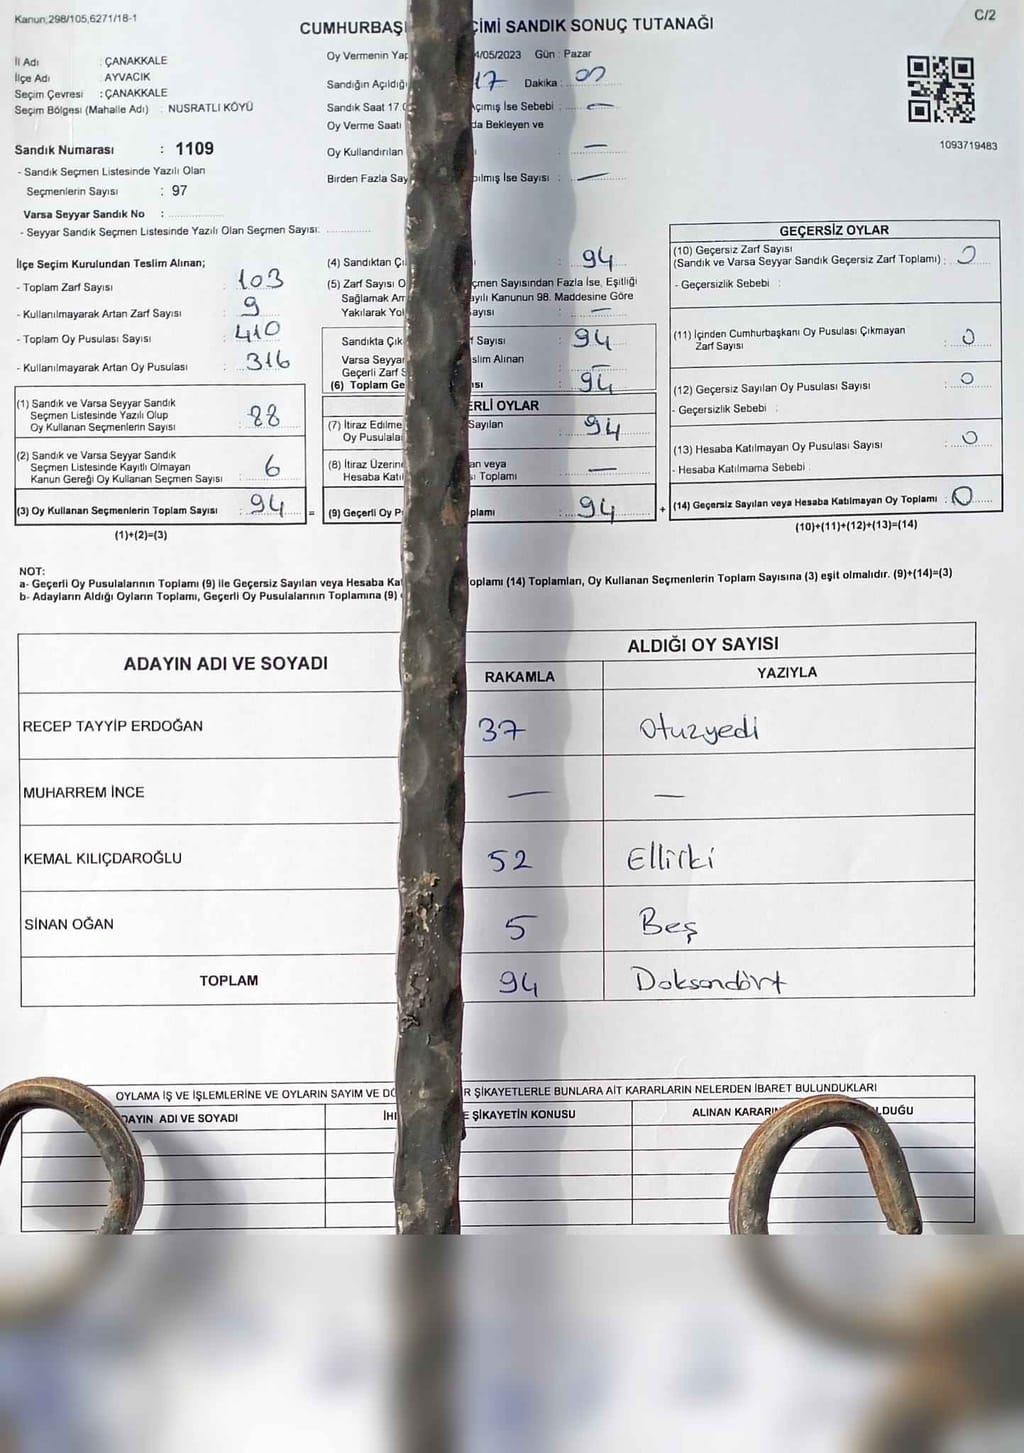 Kanun;298/105,6271/18-1
C/2
CUMHURBAŞ ÇİMİ SANDIK SONUÇ TUTANAĞI
İl Adı : ÇANAKKALE
İlçe Adı : AYVACIK
Seçim Çevresi : ÇANAKKALE
Seçim Bölgesi (Mahalle Adı) : NUSRATLI KÖYÜ
Sandık Numarası : 1109
- Sandık Seçmen Listesinde Yazılı Olan
Seçmenlerin Sayısı : 97
Varsa Seyyar Sandık No :
- Seyyar Sandık Seçmen Listesinde Yazılı Olan Seçmen Sayısı:
Oy Vermenin Yap 4/05/2023 Gün : Pazar
Sandığın Açıldığı 17 Dakika :
Sandık Saat 17:0 Açımış İse Sebebi : —
Oy Verme Saati da Bekleyen ve
Oy Kullandırılan : —
Birden Fazla Say pılmış İse Sayısı : —
1093719483
İlçe Seçim Kurulundan Teslim Alınan;
- Toplam Zarf Sayısı : 103
- Kullanılmayarak Artan Zarf Sayısı : 9
- Toplam Oy Pusulası Sayısı : 410
- Kullanılmayarak Artan Oy Pusulası : 316
(1) Sandık ve Varsa Seyyar Sandık
Seçmen Listesinde Yazılı Olup
Oy Kullanan Seçmenlerin Sayısı : 88
(2) Sandık ve Varsa Seyyar Sandık
Seçmen Listesinde Kayıtlı Olmayan
Kanun Gereği Oy Kullanan Seçmen Sayısı : 6
(3) Oy Kullanan Seçmenlerin Toplam Sayısı : 94 =
(1)+(2)=(3)
(4) Sandıktan Çı : 94
(5) Zarf Sayısı O çmen Sayısından Fazla İse, Eşitliği
Sağlamak Am ayılı Kanunun 98. Maddesine Göre
Yakılarak Yo ayısı : —
Sandıkta Çık f Sayısı : 94
Varsa Seyyar slim Alınan
Geçerli Zarf S : —
(6) Toplam Ge ısı : 94
ERLİ OYLAR
(7) İtiraz Edilme Sayılan
Oy Pusulala : 94
(8) İtiraz Üzerine an veya
Hesaba Katıl ı Toplamı : —
(9) Geçerli Oy P plamı : 94 +
GEÇERSİZ OYLAR
(10) Geçersiz Zarf Sayısı
(Sandık ve Varsa Seyyar Sandık Geçersiz Zarf Toplamı) : 0
- Geçersizlik Sebebi :
(11) İçinden Cumhurbaşkanı Oy Pusulası Çıkmayan
Zarf Sayısı : 0
(12) Geçersiz Sayılan Oy Pusulası Sayısı : 0
- Geçersizlik Sebebi :
(13) Hesaba Katılmayan Oy Pusulası Sayısı : 0
- Hesaba Katılmama Sebebi :
(14) Geçersiz Sayılan veya Hesaba Katılmayan Oy Toplamı : 0
(10)+(11)+(12)+(13)=(14)
NOT:
a- Geçerli Oy Pusulalarının Toplamı (9) ile Geçersiz Sayılan veya Hesaba Ka oplamı (14) Toplamları, Oy Kullanan Seçmenlerin Toplam Sayısına (3) eşit olmalıdır. (9)+(14)=(3)
b- Adayların Aldığı Oyların Toplamı, Geçerli Oy Pusulalarının Toplamına (9)
ADAYIN ADI VE SOYADI ALDIĞI OY SAYISI
RAKAMLA YAZIYLA
RECEP TAYYİP ERDOĞAN 37 Otuzyedi
MUHARREM İNCE — —
KEMAL KILIÇDAROĞLU 52 Elliiki
SİNAN OĞAN 5 Beş
TOPLAM 94 Doksandört
OYLAMA İŞ VE İŞLEMLERİNE VE OYLARIN SAYIM VE DÖ R ŞİKAYETLERLE BUNLARA AİT KARARLARIN NELERDEN İBARET BULUNDUKLARI
DAYIN ADI VE SOYADI İHİ E ŞİKAYETİN KONUSU ALINAN KARARIN LDUĞU